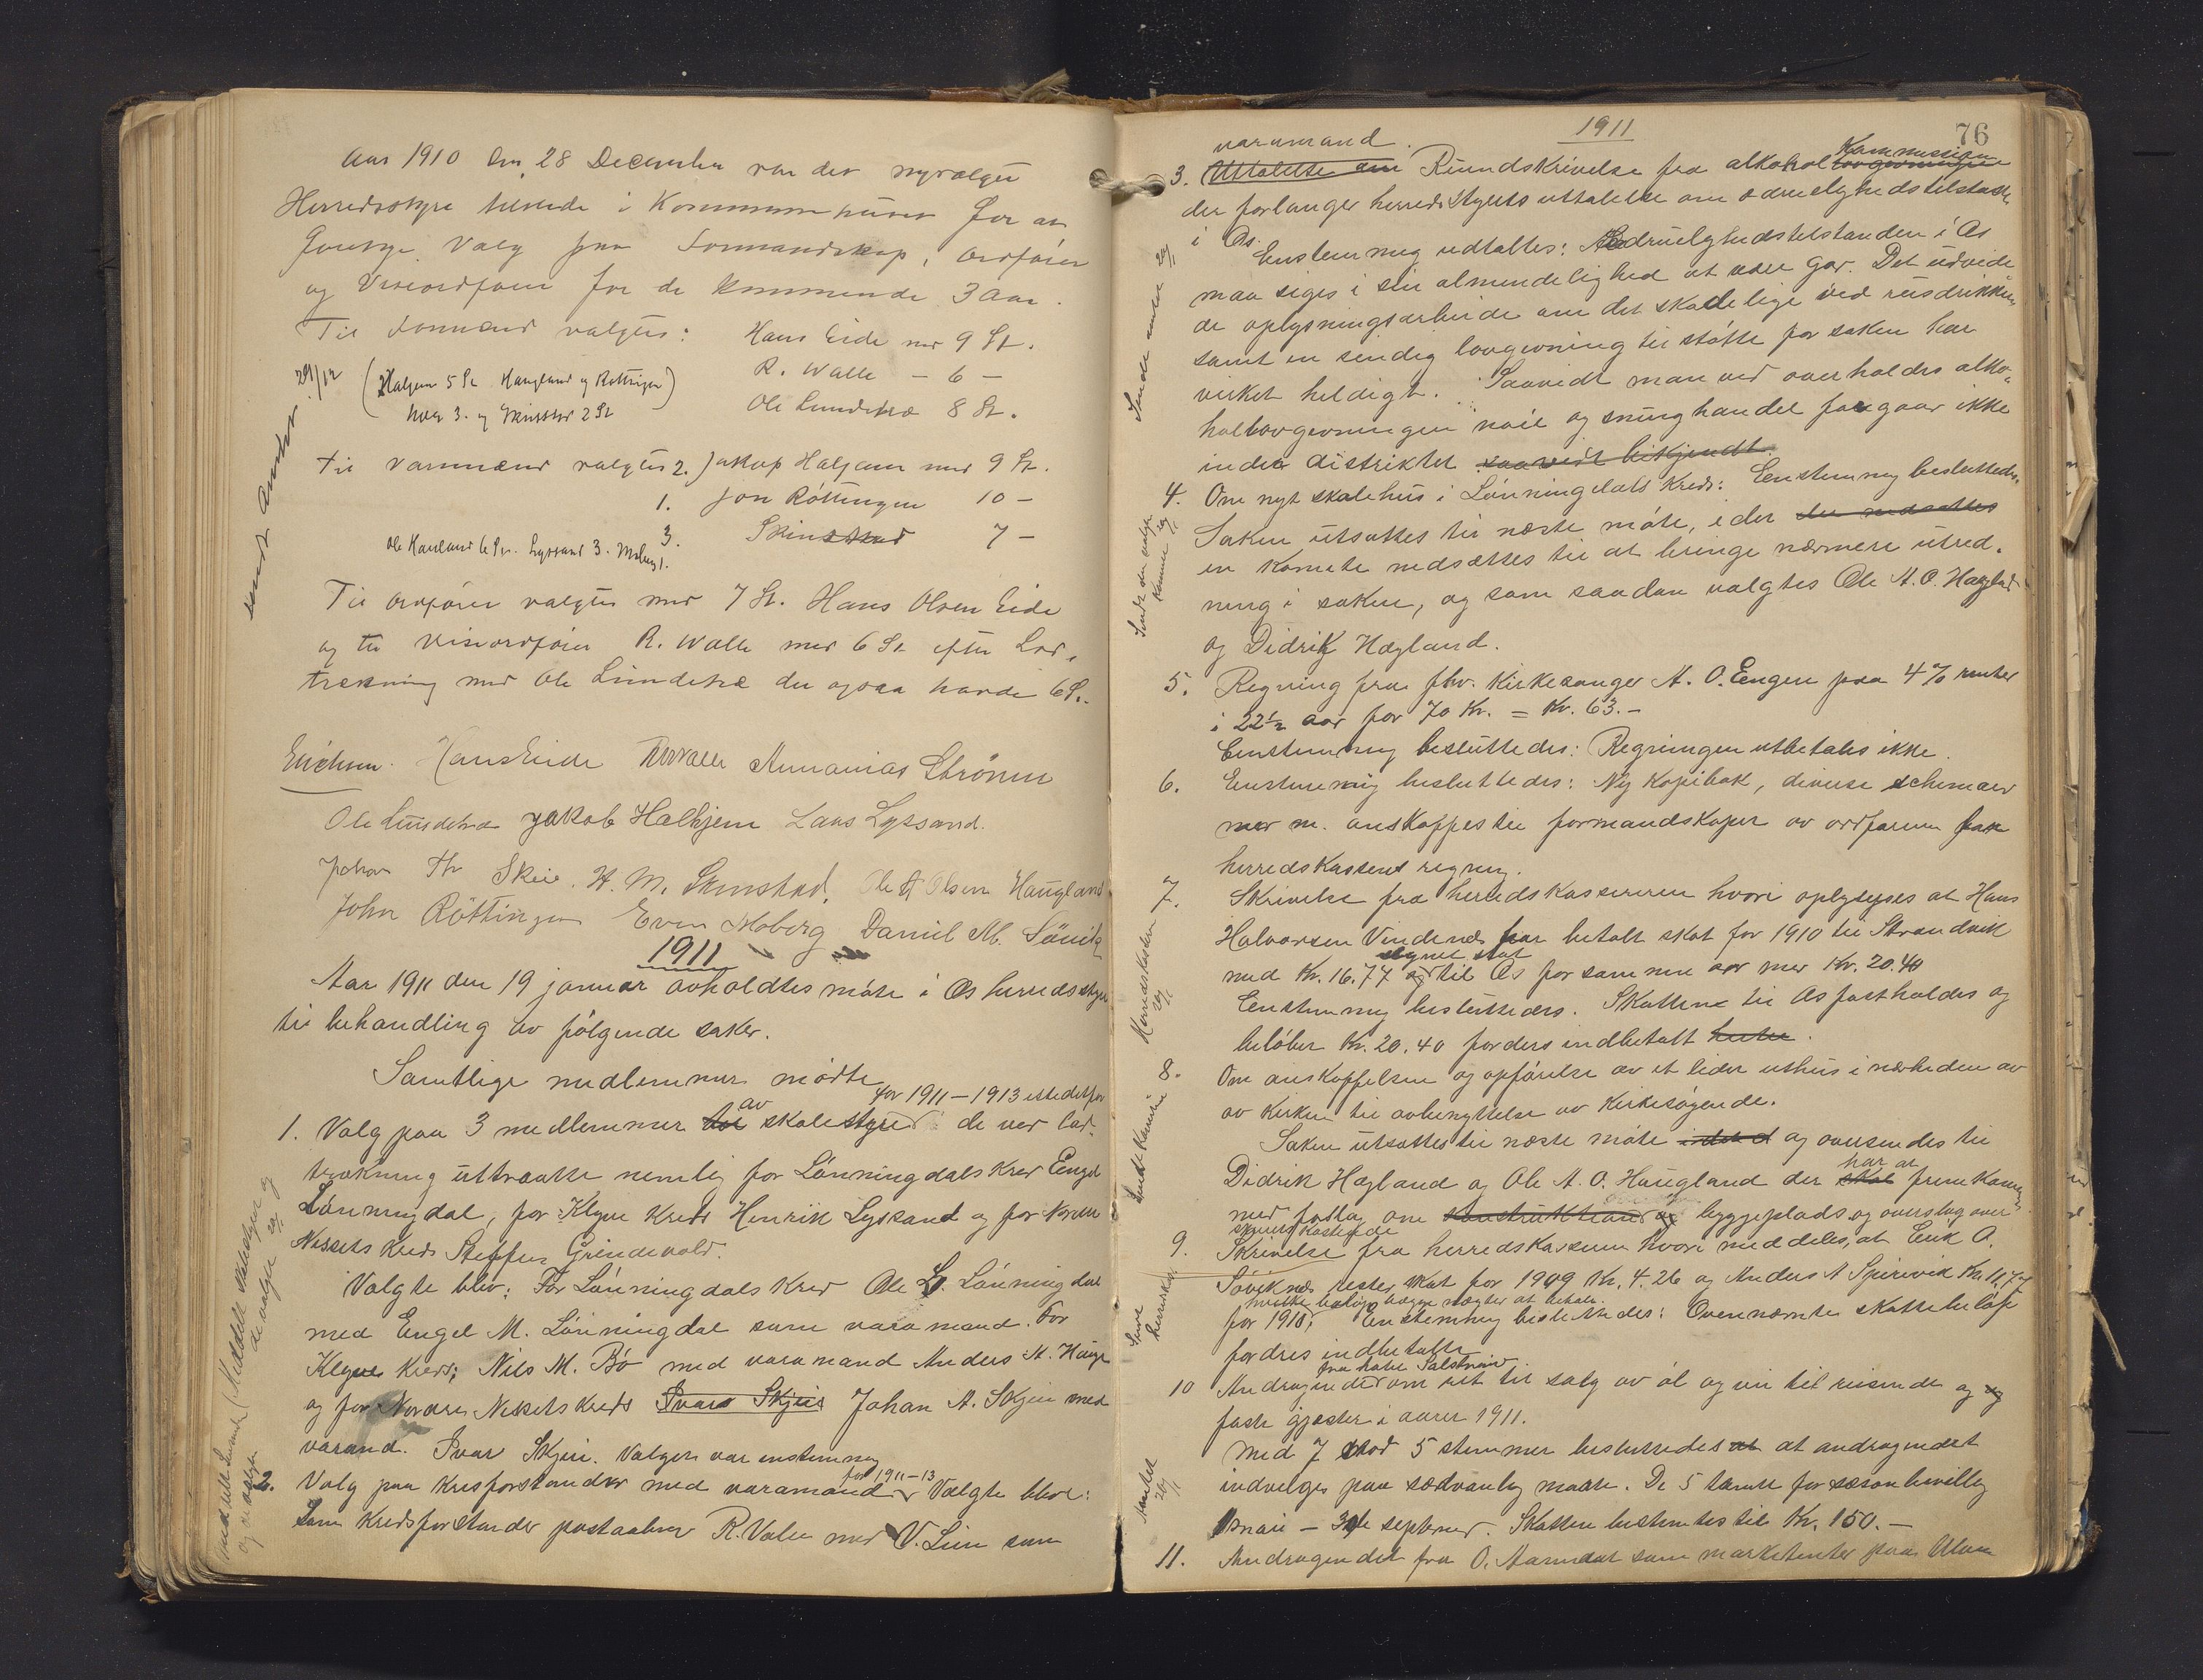 Aar 1910 den 28 December var det nyvalgte
Herredsstyre tilstede i Kommunehuset for at
foretage valg paa Formandskap, Ordfører
og Viseordfører for de kommende 3 Aar.
Til Formænd valgtes: Hans Eide med 9 St.
R. Walle – 6 –
Ole Lundetræ 8 St.
29/12 (Haljem 5 St. Haugland og Røttingen)
hver 3. og Skinstad 2 St
sendt Amtet
Til varamænd valgtes 2. Jakop Haljem med 9 St.
1. Jon Röttingen 10 –
3. Skinstad 7 –
Ole Haugland 6 St. Lyssand 3. Moberg 1.
Til Ordfører valgtes med 7 St. Hans Olsen Eide
og til Viseordfører R. Walle med 6 St. efter Lod-
trækning med Ole Lundetræ der ogsaa havde 6 St.
Erichsen. Hans Eide RWalle Annanias Strönen
Ole Lundetræ Jakob Halhjem Lars Lyssand.
Johan Th Skeie. H. M. Skinstad. Ole A Olsen Haugland
John Röttingen Even Moberg Daniel M. Søvik
1911
Aar 1911 den 19 januar avholdtes møte i Os herredsstyre
til behandling av følgende saker.
Samtlige medlemmer mødte
1. Valg paa 3 medlemmer til av skolestyret for 1911–1913 istedetfor de ved lod-
trækning uttraadte nemlig for Lønningdals kred Engel
Lønningdal, for Klyve Kreds Henrik Lyssand og for Nordre
Nessets Kreds Steffen Grindevold.
Valgte blev: For Lønningdals Kred Ole L. Lønningdal
med Engel M. Lønningdal som varamand. For
Klyve Kreds; Nils M. Bö med varamand Anders A. Hauge
og for Nordre Nessets kreds Ivar Skjeie Johan A. Skjeie med
varamd. Ivar Skjeie. Valgen var enstemmig
2. Valg paa kresforstander med varamand for 1911–13 Valgte blev:
Som Kredsforstander postaabner R. Valle med V. Lien som
1911
76
varamand.
3. Uttalelse om Rundskrivelse fra alkohollovgivningen Kommussion
der forlanger herredsstyrets uttalelse om ædruelighedstilstand
i Os.
Enstemmig udtaltes: Ædruelighedstilstanden i Os
maa siges i sin almendelighed at være god. Det udvide
de oplysningsarbeide om det skadelige ved rusdrikker
samt en sindig lovgivning til støtte for saken har
virket heldigt. Saavidt man ved overholdes alko-
hollovgivningen nøie og smughandel foregaar ikke
inden distriktet saavidt bekjendt.
4. Om nyt skolehus i Lønningdals Kreds: Enstemmig besluttedes
Saken utsættes til næste møte, i det der nedsættes
en Komite nedsættes til at bringe nærmere utred-
ning i saken, og som saadan valgtes Ole A. O. Haugland
og Didrik Hægland.
5. Regning fra fhv. Kirkesanger A. O. Engen paa 4 % renter
i 22½ aar for 70 Kr. = Kr. 63.–
Enstemmig besluttedes: Regningen utbetales ikke.
6. Enstemmig besluttedes: Ny Kopibok, diverse schemaer
mer m. anskaffes til formandskapet av ordføreren paa
herredskassens regning.
7. Skrivelse fra herredskassereren hvori oplyses at Hans
Halvorsen Vindenæs har betalt skat for 1910 til Strandvik
med Kr. 16.77 og til Os for samme aar med Kr. 20.40
Enstemmig besluttedes. Skatten til Os fastholdes og
beløbet Kr. 20.40 fordres indbetalt.
8. Om anskaffelsen og opførelse av et lidet uthus i nærheden av
av Kirken til avbenyttelse av Kirkesøgende.
Saken utsættes til næste møte i det d og oversendes til
Didrik Hægland og Ole A. O. Haugland der skal har at fremkomme
med forslag om konstruktion og byggeplads og overslag over
omkostende
9. Skrivelse fra herredskassereren hvori meddeles, at Erik O.
Søviknæs rester skat for 1909 Kr. 4.26 og Anders A Spirevik Kr. 11,77
for 1910, hvilke beløp begge nægter at betale. Enstemmig besluttedes: Ovennævnte skattebeløp
fordres indbetalte
10 Andragendet fra hotel Solstrand om ret til salg av øl og vin til reisende og og
faste gjæster i aaret 1911.
Med 7 mod 5 stemmer besluttedes at at andragendet
indvilges paa sædvanlig maate. De 5 stemte for sæsonbevilling
1 mai – 30te september. Skatten bestemtes til Kr. 150.–
11. Andragendet fra O. Aamdal som marketenter paa Ulven